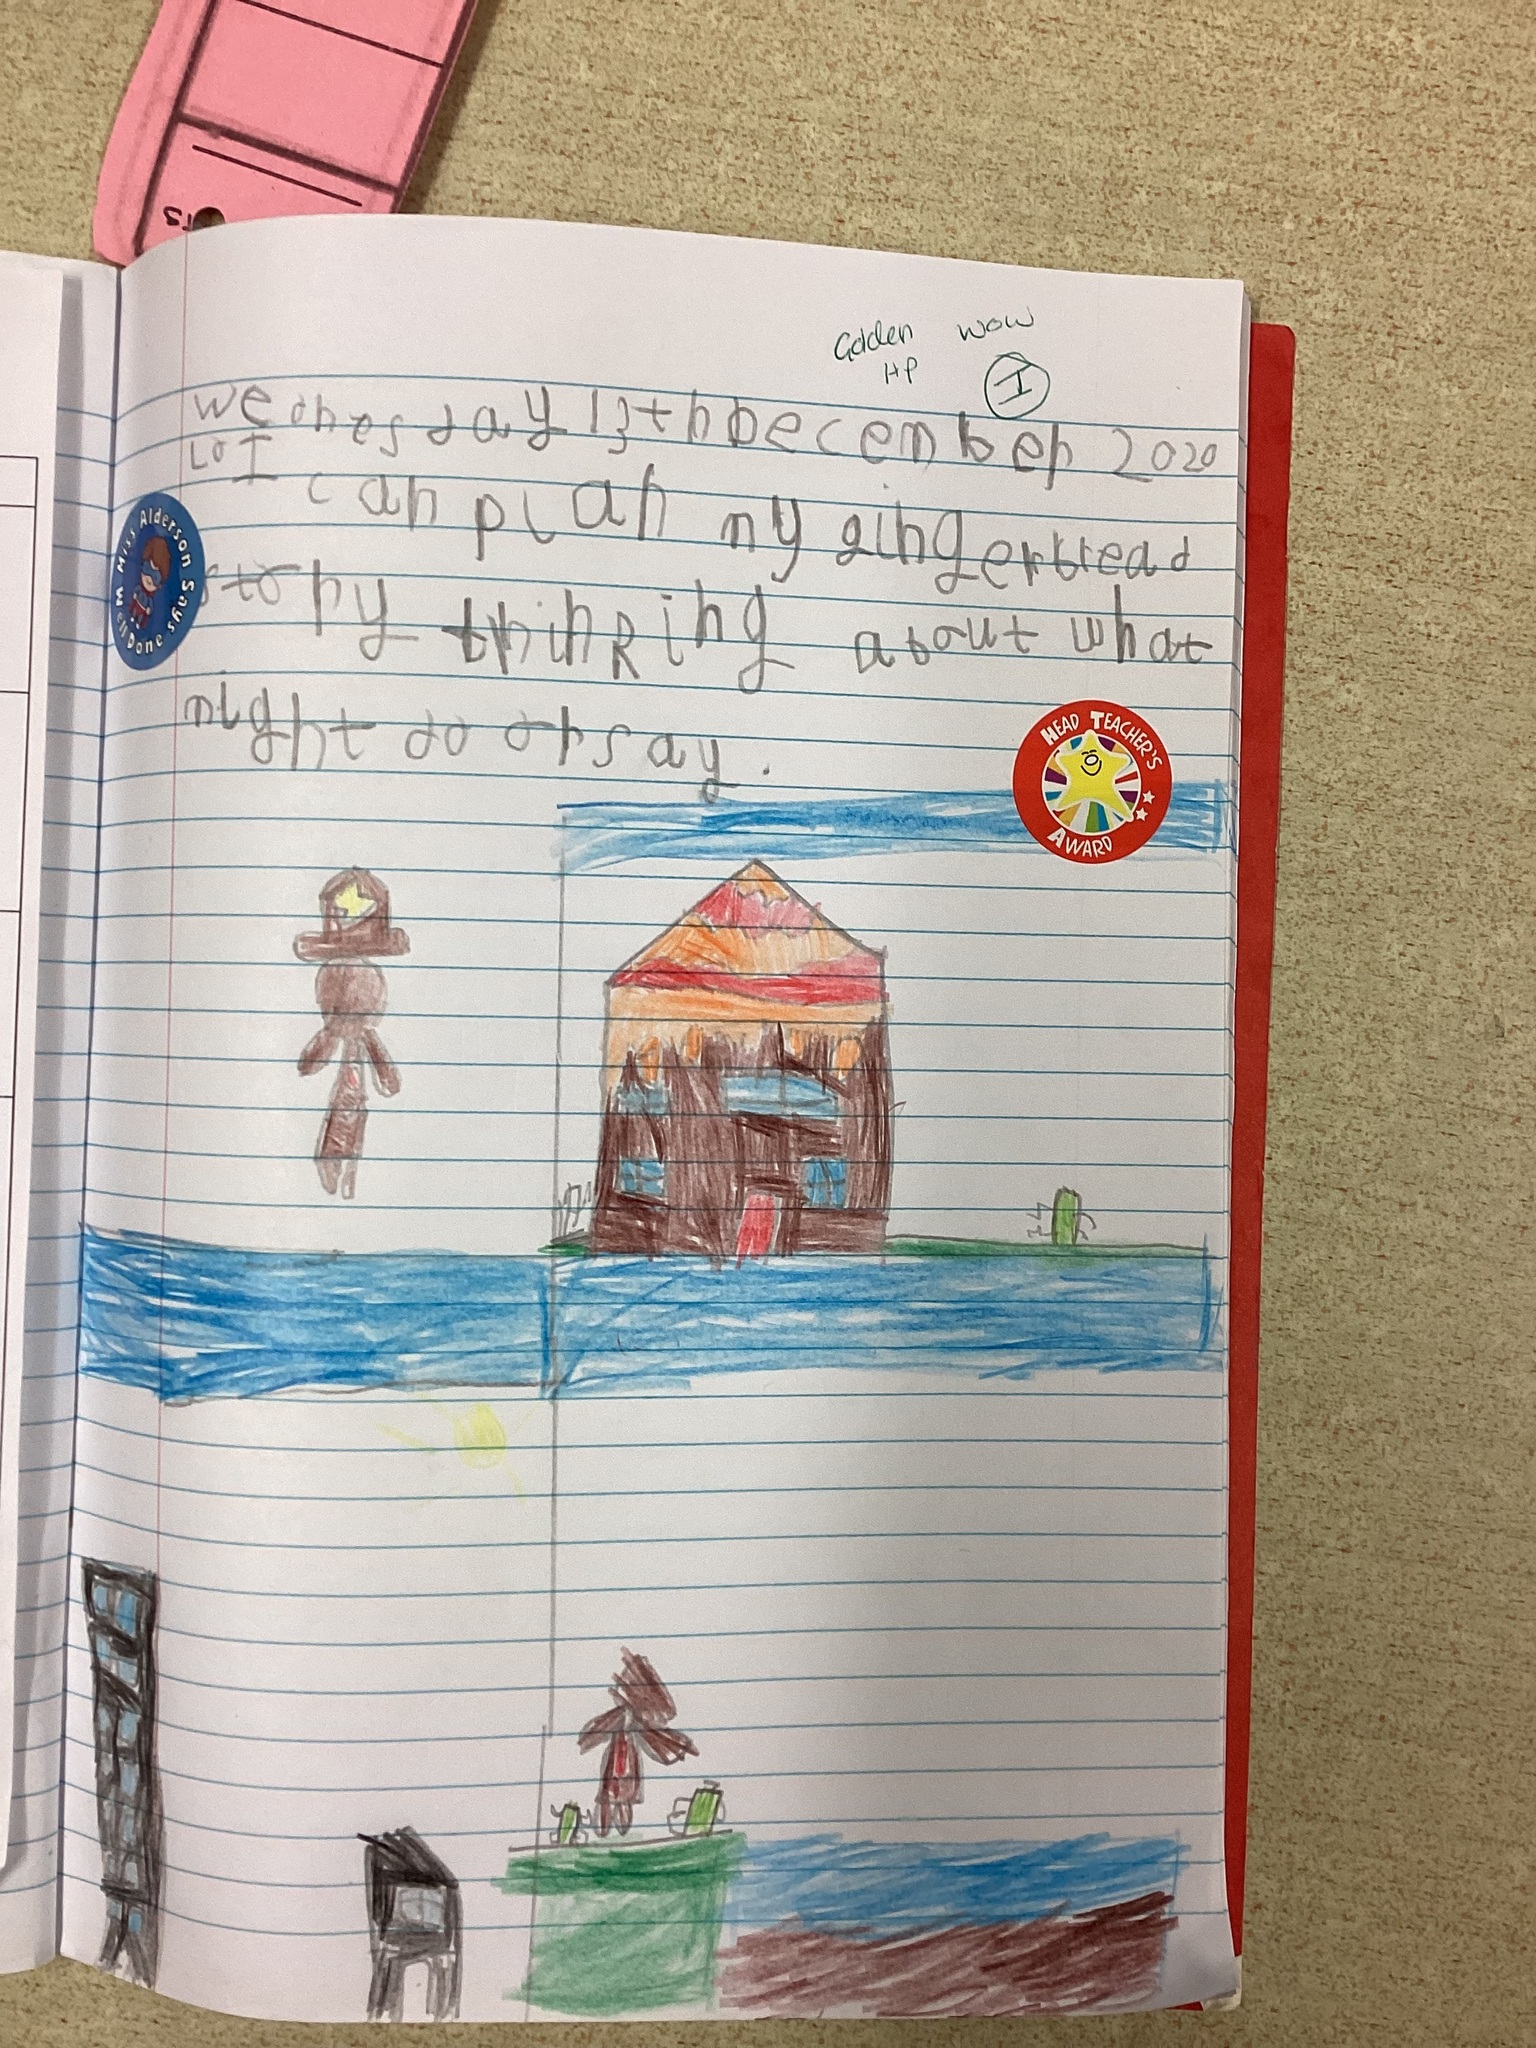 Golden WOW
HP I
wednesday 13th december 2020
LOI
I can plan my gingerbread
story thinking about what
might do or say.
Miss Alderson Says
Well Done
HEAD TEACHER'S
AWARD